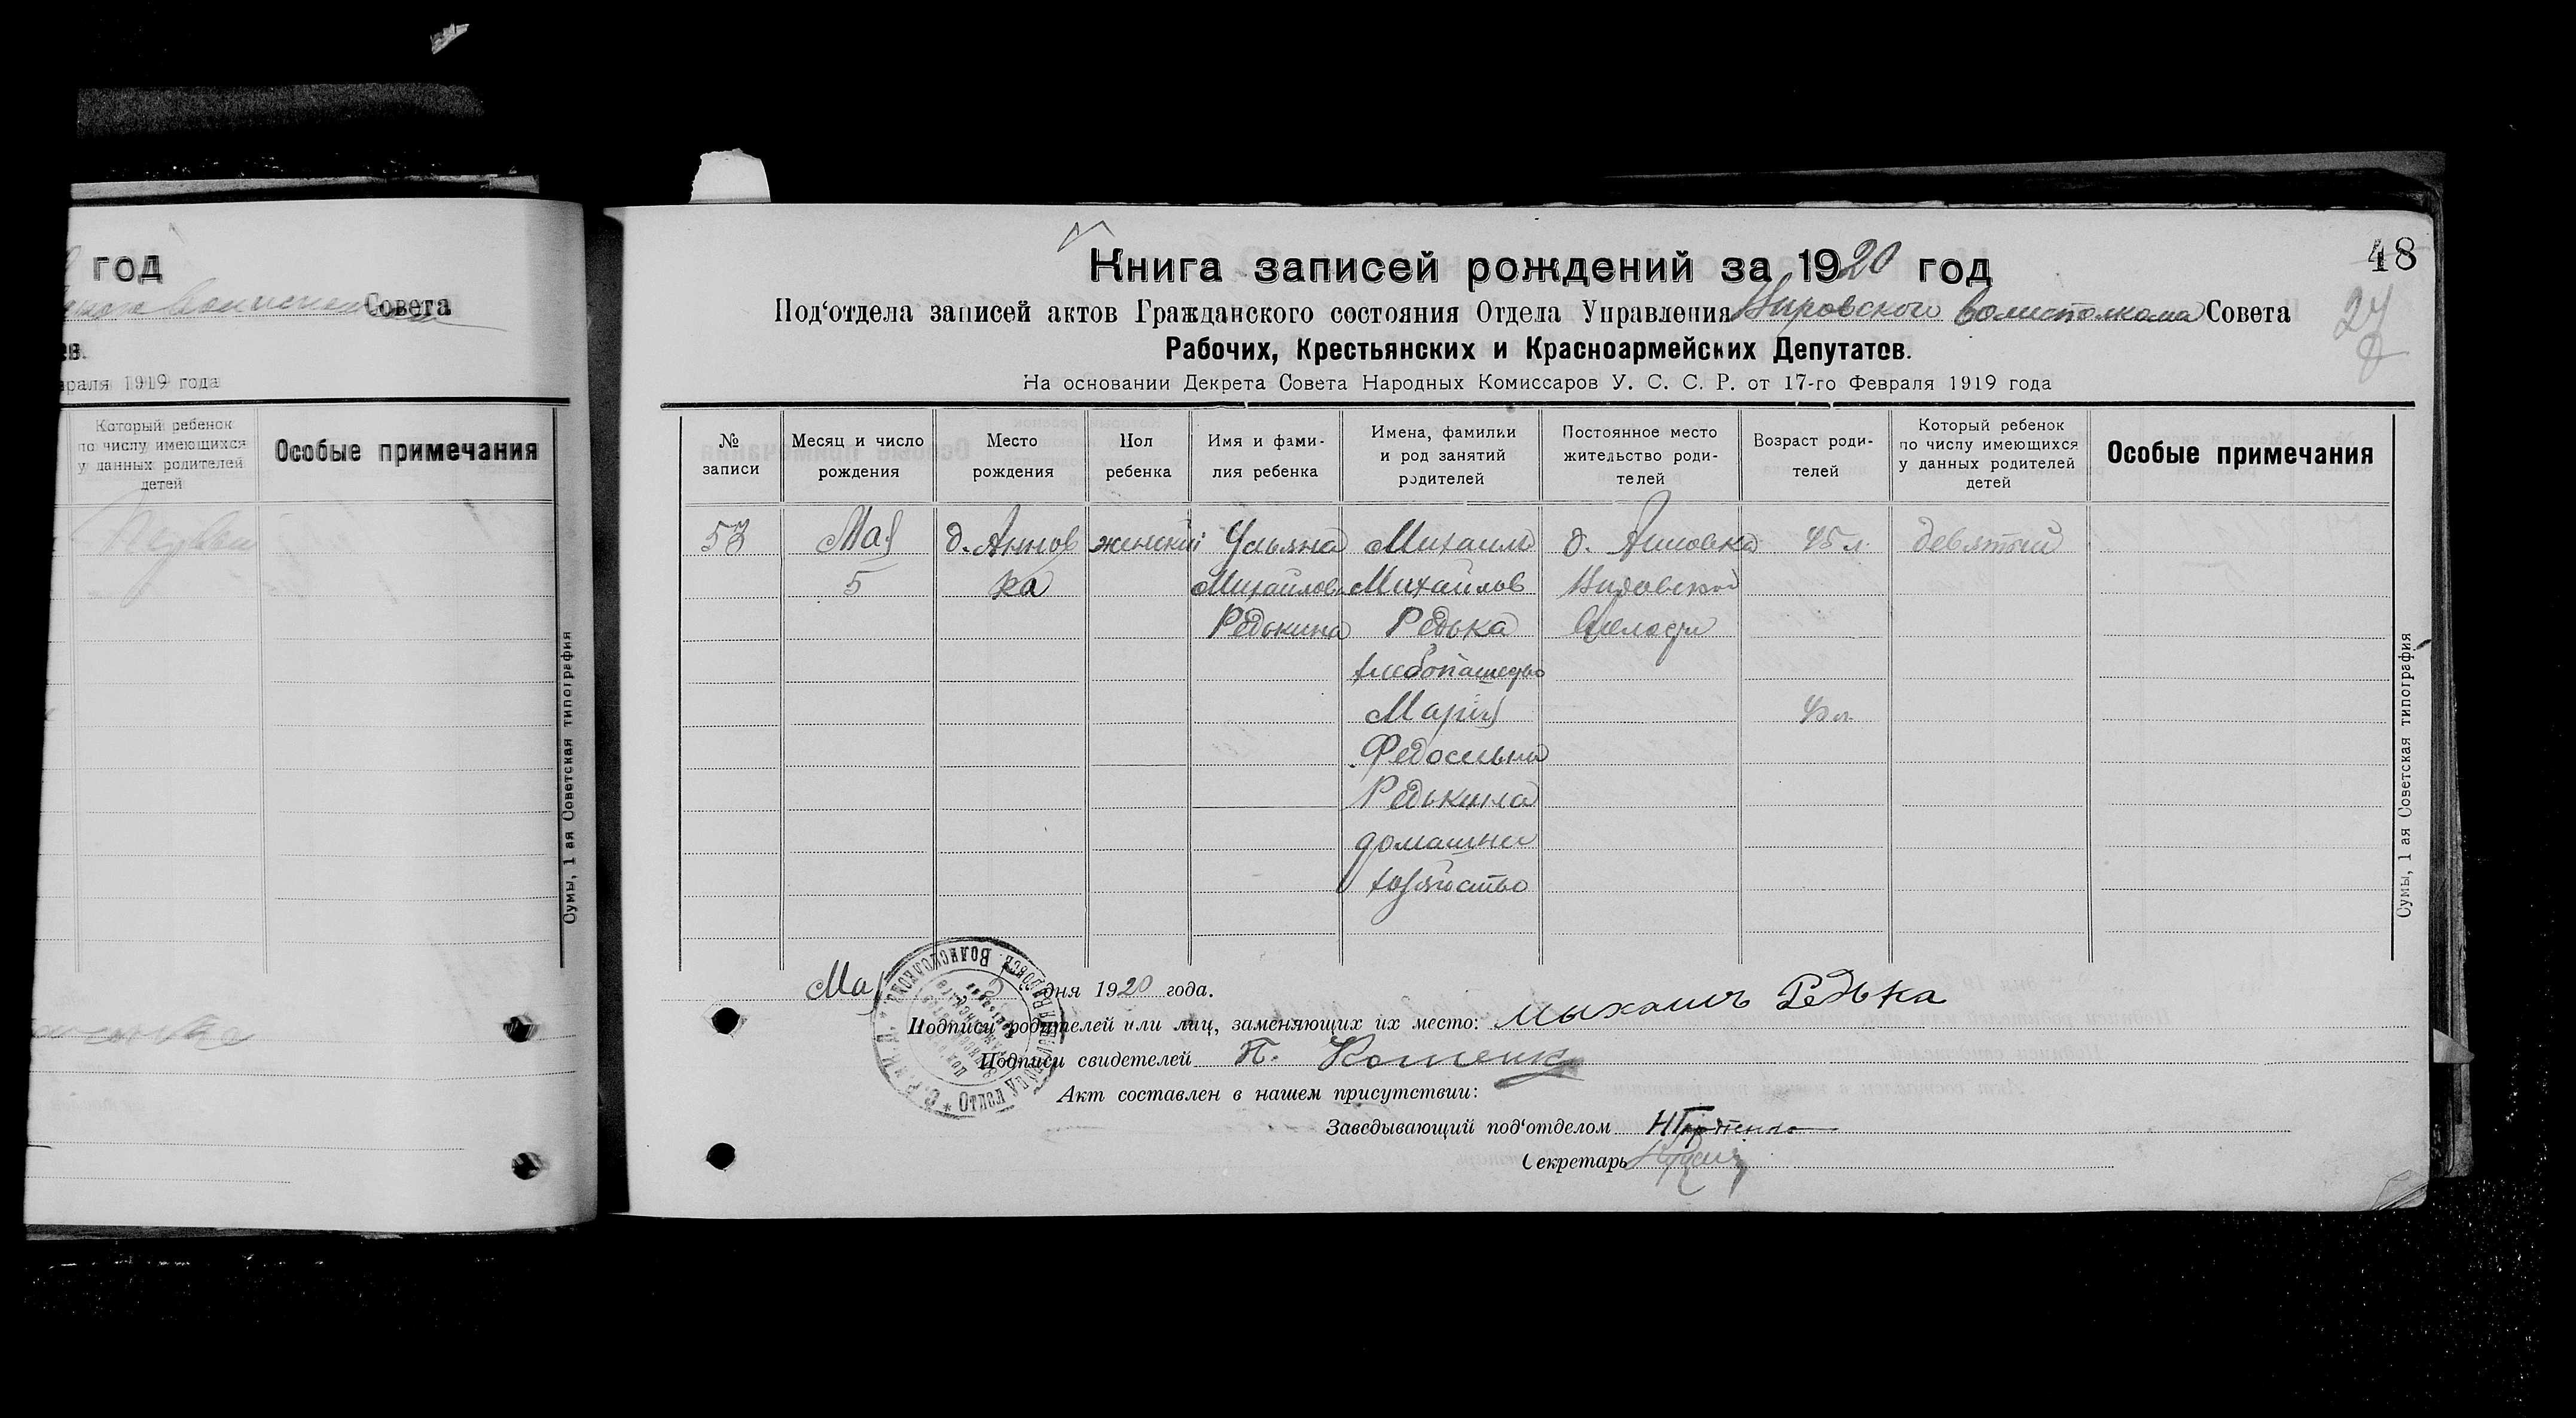 год
Совета
ев.
враля 1919 года
Который ребенок
по числу имеющихся
у данных родителей
детей
Особые примечания
Сумы, 1 ая Советская типография
48
27
Книга записей рождений за 1920 год
Под‘отдела записей актов Гражданского состояния Отдела Управления волисполкома Совета
Рабочих, Крестьянских и Красноармейских Депутатов.
На основании Декрета Совета Народных Комиссаров У. С. С. Р. от 17-го Февраля 1919 года
№ записи
Месяц и число рождения
Место рождения
Пол ребенка
Имя и фами-
лия ребенка
Имена, фамилии
и род занятий
родителей
Постоянное место
жительство роди-
телей
Возраст роди-
телей
Который ребенок
по числу имеющихся
у данных родителей
детей
Особые примечания
53 Мая д. Аннов женский Ульяна Михаил д. Анновка 45 л. девятый
5 ка Михайлова Михайлов
Редькина Редька Волости
хлебопашество
Марія
Федосеевна
Редькина
домашнее
хозяйство
Мая дня 1920 года.
Подписи родителей или лиц, заменяющих их место: Михаилъ Редька
Подписи свидетелей П.
Акт составлен в нашем присутствии:
Заведывающий под‘отделом
Секретарь
Сумы, 1 ая Советская типография